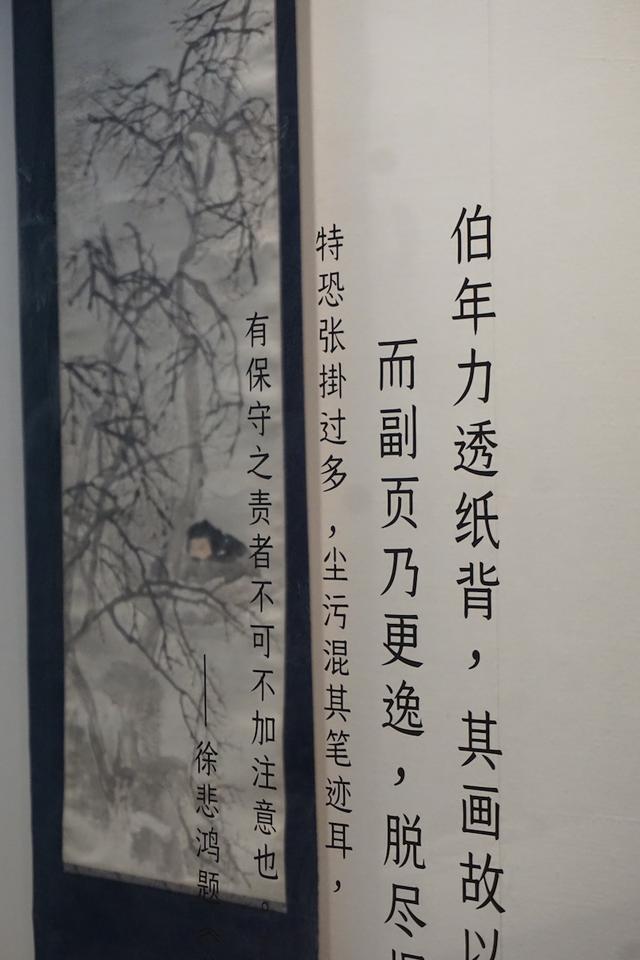 伯年力透纸背，其画故以
而副页乃更逸，脱尽
特恐张掛过多，尘污混其笔迹耳，
有保守之责者不可不加注意也。
——徐悲鸿题《